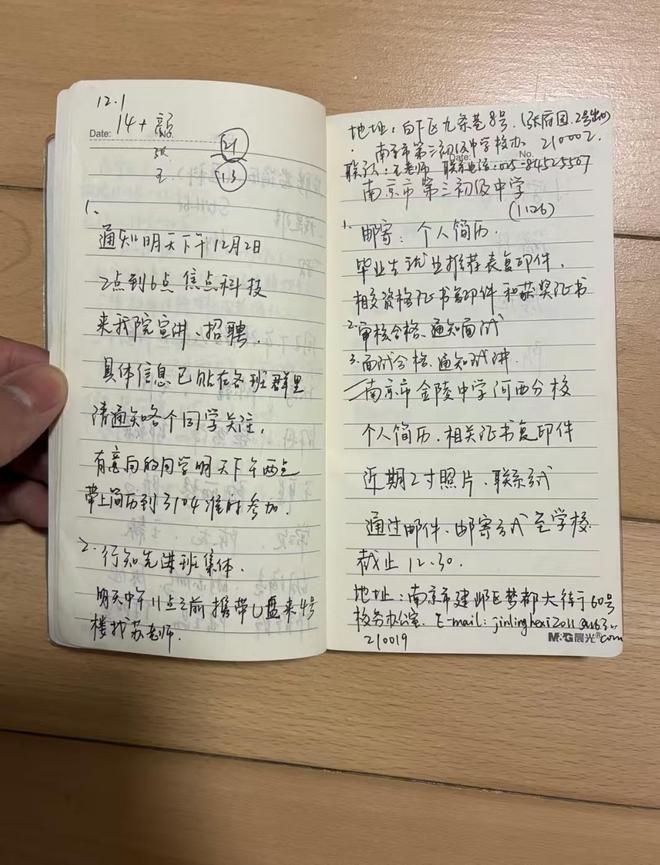 12.1
Date: 14+
No.
21
王
1.3
1.
通知明天下午12月2日
2点到6点 焦点科技
来我院宣讲、招聘.
具体信息已贴在各班群里
请通知各个同学关注.
有意向的同学明天下午两点
带上简历到3104准时参加.
2. 行知先进班集体.
明天中午11点之前携带U盘来4号
楼找苏老师.
地址:白下区九条巷8号.(张府园.2号出口)
南京市第三初级中学校办. 210002.
Date:
No.
联系人:王老师 联系电话:025-84525507
南京市第三初级中学
(1126)
1. 邮寄:个人简历.
毕业生就业推荐表复印件.
相关资格证书复印件和获奖证书
2. 审核合格、通知面试
3. 面试合格、通知试讲.
南京市金陵中学河西分校
个人简历.相关证书复印件
近期2寸照片、联系方式
通过邮件、邮寄方式至学校.
截止12.30.
地址:南京市建邺区梦都大街60号
校务办公室. E-mail:jinlinghexi2011@163.com
210019
M&G晨光®